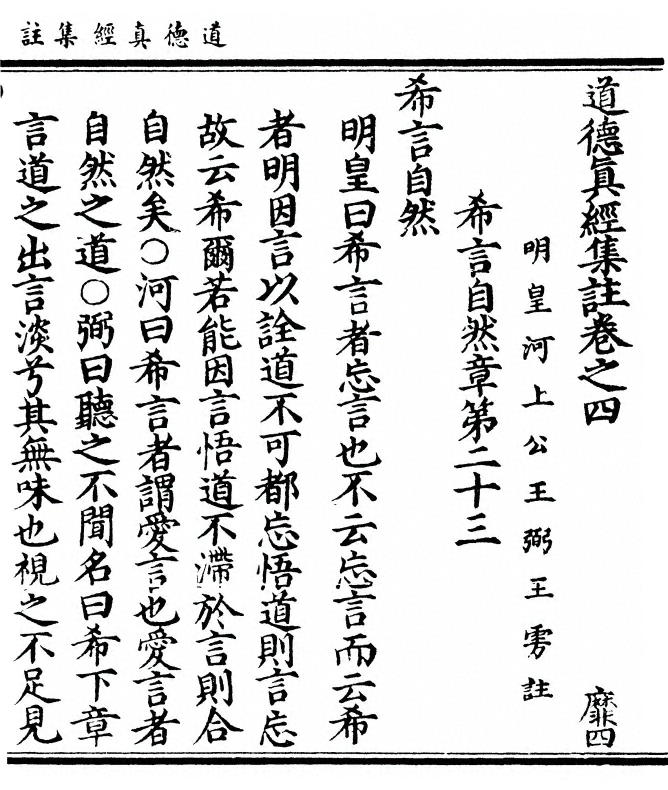 道德真經集註
道德眞經集註卷之四 靡四
明皇河上公王弼王雱註
希言自然章第二十三
希言自然
明皇曰希言者忘言也不云忘言而云希
者明因言以詮道不可都忘悟道則言忘
故云希爾若能因言悟道不滯於言則合
自然矣○河曰希言者謂愛言也愛言者
自然之道○弼曰聽之不聞名曰希下章
言道之出言淡兮其無味也視之不足見